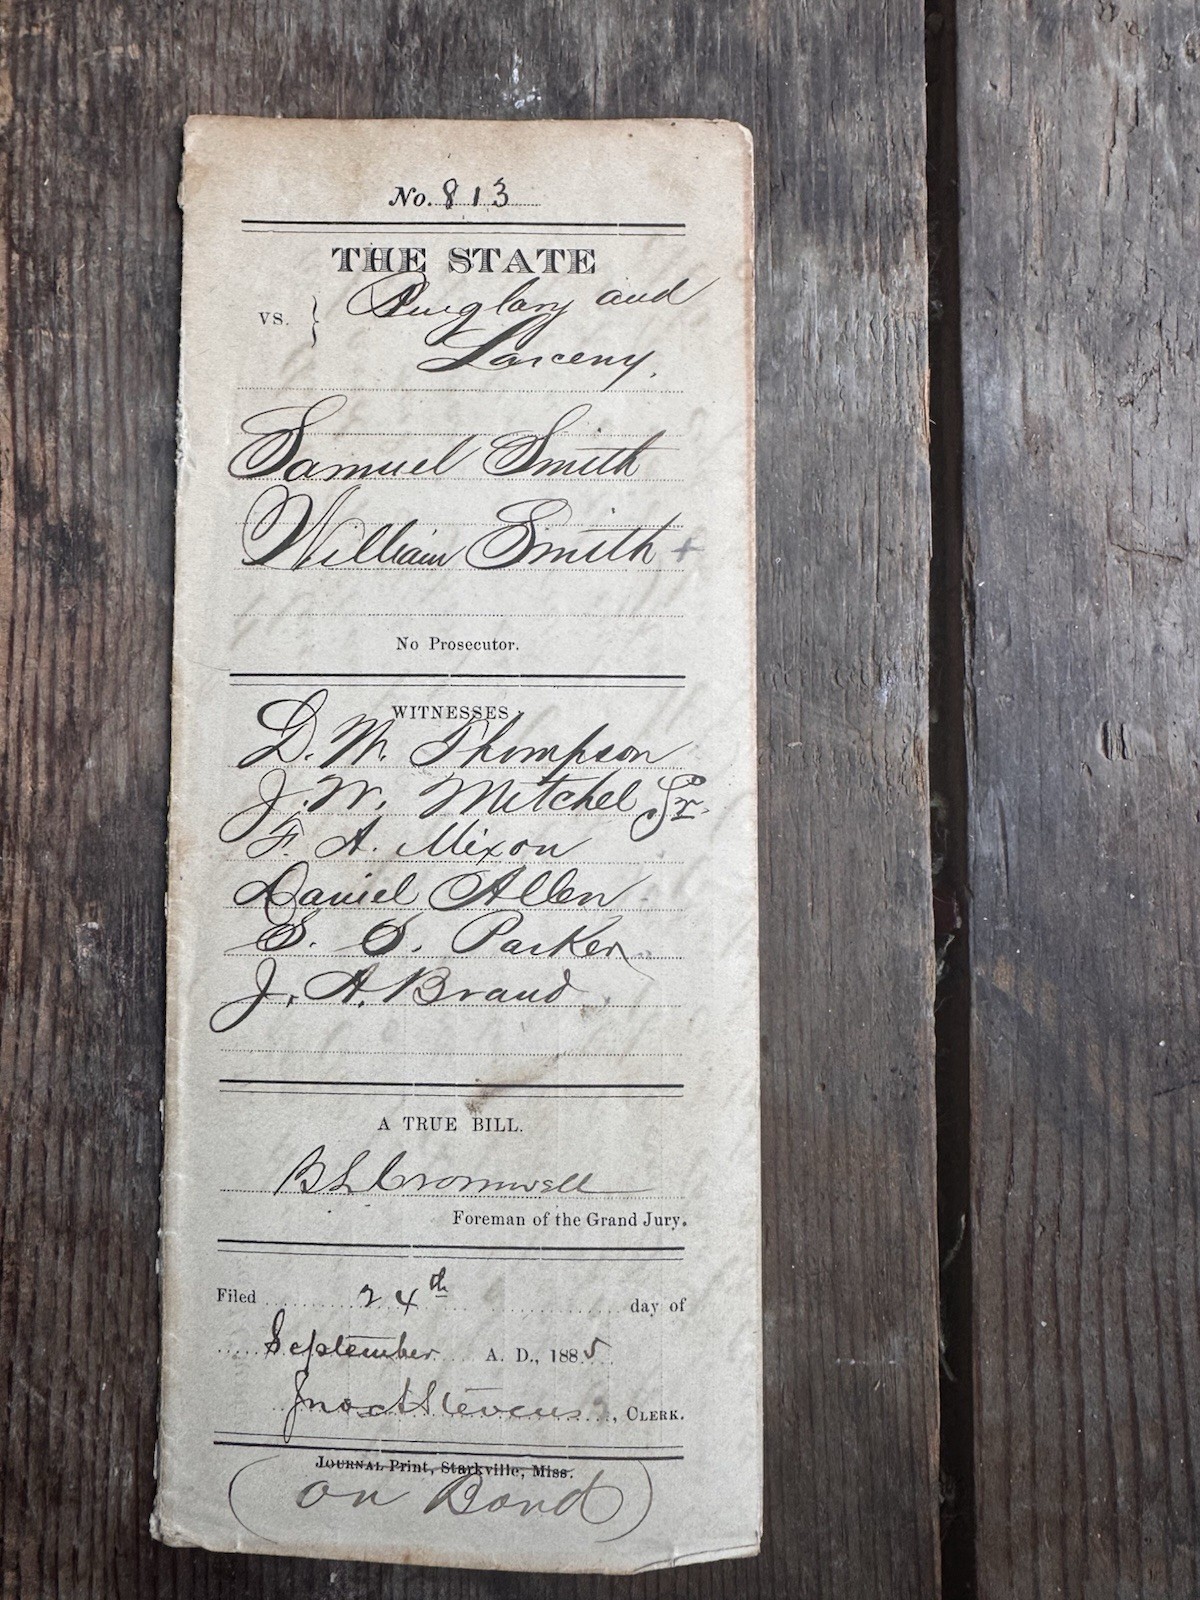 No. 813
THE STATE
vs. } Burglary and
Larceny.
Samuel Smith
William Smith +
No Prosecutor.
WITNESSES:
D. W. Thompson
J. W. Mitchel Sr.
F. A. Mixon
Daniel Allen
S. S. Parker
J. A. Brand
A TRUE BILL.
B L Cromwell
Foreman of the Grand Jury.
Filed 24th day of
September A. D., 1885
Jno A Stevens, CLERK.
JOURNAL Print, Starkville, Miss.
(on Bond)